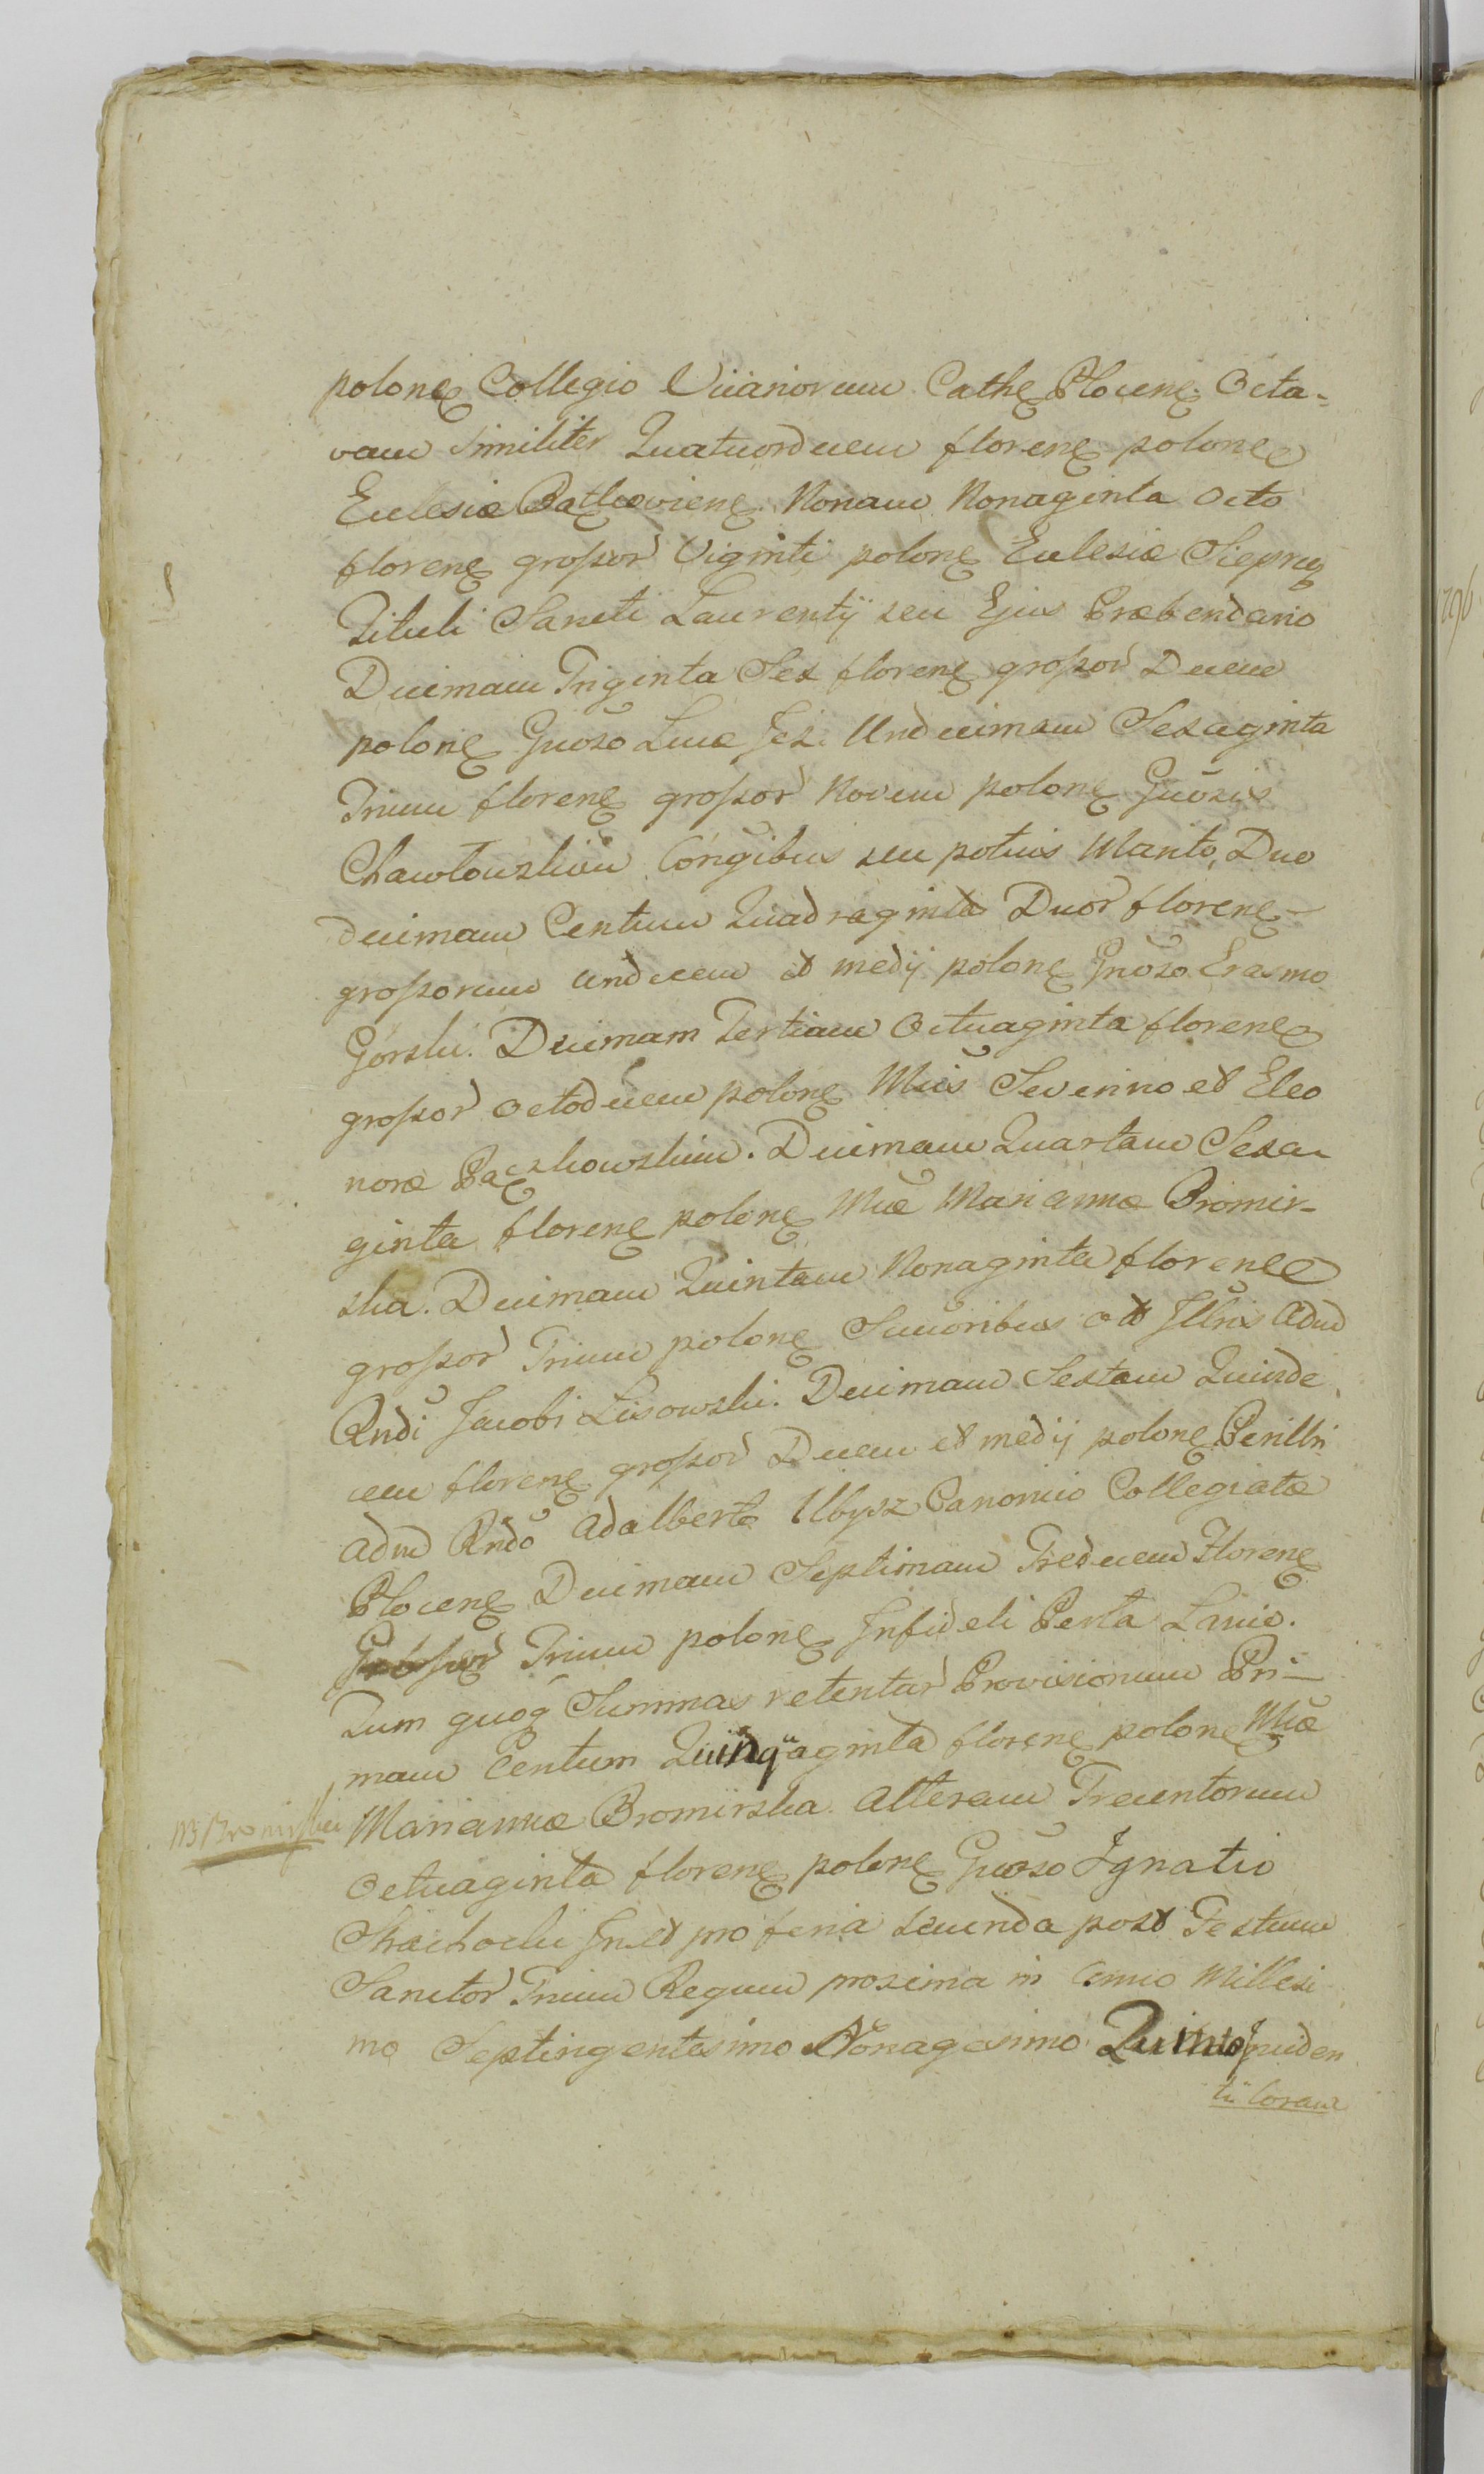 polonę Collegio Vicariorum Cathę Plocenę. Octa-
vam Similiter Quatuordecem florenę polonę
Ecclesiæ Bątkovienę. Nonam Nonaginta Octo
florenę grossor Viginti polonę Ecclesiæ Sieprcę
Tituli Sancti Laurentÿ seu Ejus Præbendario
Decimam Triginta Sex florenę grossor Decem
polonę Gnoso Lucæ Jez. Undecimam Sexaginta
Trium florenę grossor Novem polonę Gnosis
Chawłowskim Congibus seu potius Marito, Duo
decimam Centum Quadraginta Duor florenę
grossorum undecem et medÿ polonę Gnoso Erasmo
Górski. Decimam Tertiam Octuaginta florenę
grossor Octodecem polonę Mcis Severino et Eleo
noræ Pączkowskim. Decimam Quartam Sexa-
ginta florenę polonę Mcæ Mariannæ Bromir-
ska. Decimam Quintam Nonaginta florenę
grossor Trium polonę Sucoribus olt Illris Adm
Rndi Jacobi Lisowski. Decimam Sextam Quinde
cem florenę grossor Decem et medÿ polonę Perillri
Adm Rndo Adalberto Ubysz Canonico Collegiatæ
Plocenę Decimam Septimam Tredecem Florenę
Grossor Trium polonę Infideli Perla Lewic.
Tum quoq Summas retentar Provisionum Pri-
mam Centum Quinquaginta florenę polonę Mcæ
Mariannæ Bromirska. Alteram Trecentorum
Octuaginta florenę polonę Gnoso Ignatio
In et pro feria secunda post Festum
Sanctor Trium Regum proxima in Anno Millesi
mo Septingentesimo Nonagesimo Quinto
ti Coram